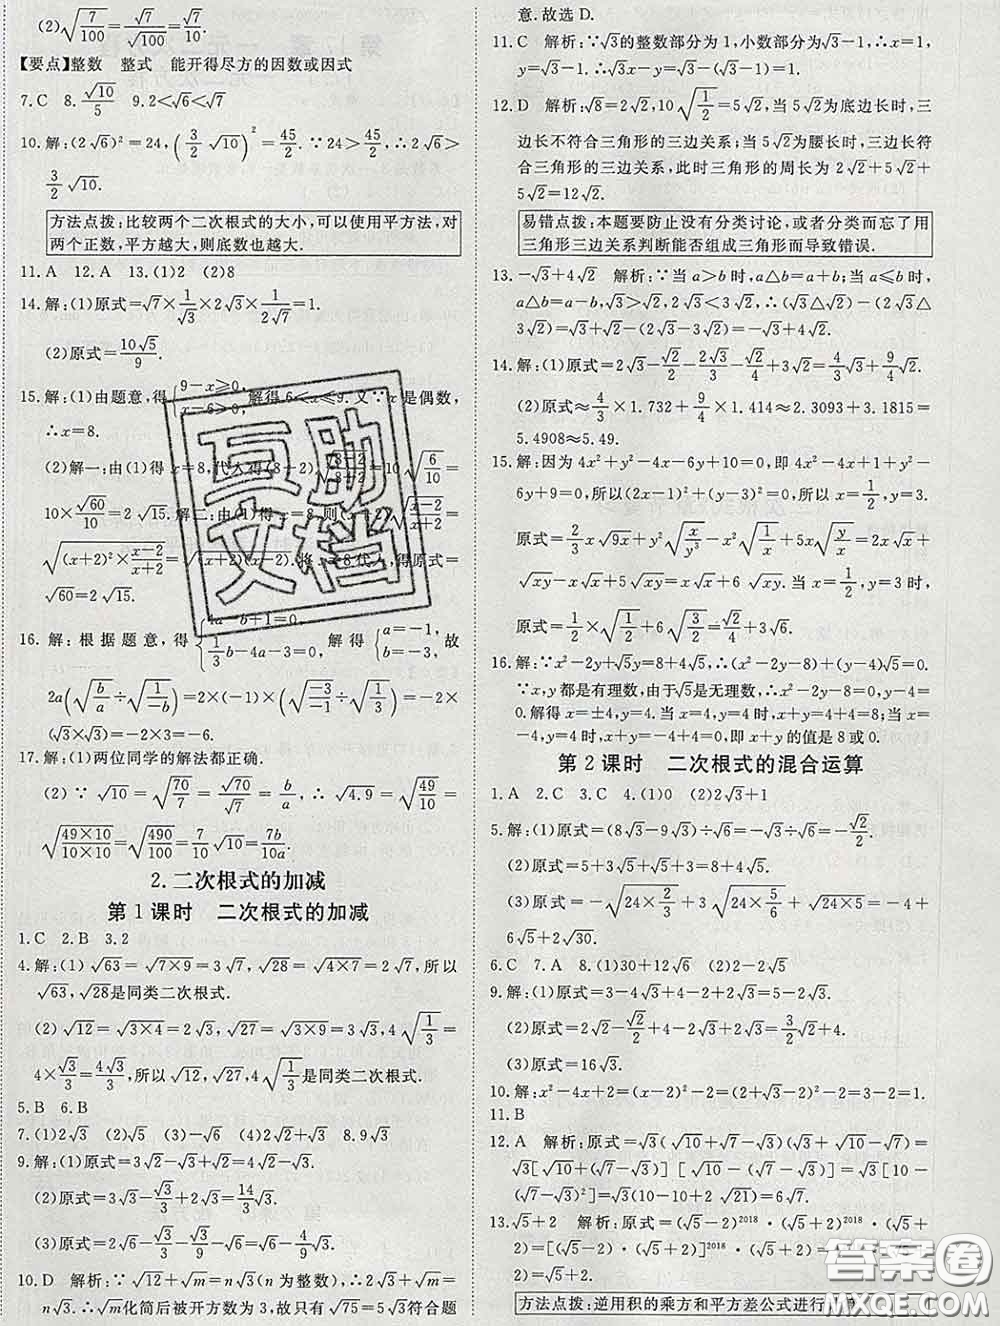 (2)√(7/100)=√7/√100=√7/10.
【要点】整数　整式　能开得尽方的因数或因式
7.C　8.√10/5　9.2<√6<√7
10.解:(2√6)²=24,(3/2 √10)²=45/2.∵24>45/2,∴2√6>
3/2 √10.
方法点拨:比较两个二次根式的大小,可以使用平方法,对
两个正数,平方越大,则底数也越大.
11.A　12.A　13.(1)2　(2)8
14.解:(1)原式=√7×1/√3×2√3×1/(2√7)=1.
(2)原式=10√5/9.
15.解:(1)由题意,得{9-x≥0, x-6>0, 解得6<x≤9.又∵x是偶数,
∴x=8.
(2)解一:由(1)得x=8,代入得(8+2)√((8-2)/(8+2))=10√(6/10)=
10×√60/10=2√15.解二:由(1)得x=8,则(x+2)√((x-2)/(x+2))=
√((x+2)²×(x-2)/(x+2))=√((x+2)(x-2)).将x=8代入,得原式=
√60=2√15.
16.解:根据题意,得{4a-b+1=0, 1/3 b-4a-3=0, 解得{a=-1, b=-3, 故
2a(√(b/a)÷√(1/-b))=2×(-1)(√(-3/-1)÷√(1/3))=-2×
(√3×√3)=-2×3=-6.
17.解:(1)两位同学的解法都正确.
(2)∵√10=√(70/7)=√70/√7=b/a,∴√4.9=√(49/10)=
√((49×10)/(10×10))=√(490/100)=7/10 √10=7b/10a.
2.二次根式的加减
第1课时　二次根式的加减
1.C　2.B　3.2
4.解:(1)√63=√(7×9)=3√7,√28=√(4×7)=2√7,所以
√63,√28是同类二次根式.
(2)√12=√(3×4)=2√3,√27=√(3×9)=3√3,4√(1/3)=
4×√3/3=4√3/3,所以√12,√27,4√(1/3)是同类二次根式.
5.B　6.B
7.(1)2√3　(2)√5　(3)-√6　(4)2√2+√3　8.9√3
9.解:(1)原式=3√2-√3+√2=4√2-√3.
(2)原式=3√3-√3/3+2√3=14/3 √3.
(3)原式=2√6-√3/3-√3/9-√6=√6-4/9 √3.
10.D　解析:∵√12+√m=n√3(n为整数),∴√m=n√3-
2√3.∴√m化简后被开方数为3,故只有√75=5√3符合题
意.故选D.
11.C　解析:∵√3的整数部分为1,小数部分为√3-1,∴x=
1,y=√3-1.∴√3x-y=√3-(√3-1)=1.
12.D　解析:√8=2√2,10√(1/2)=5√2,当5√2为底边长时,三
边长不符合三角形的三边关系,当5√2为腰长时,三边长符
合三角形的三边关系,此时三角形的周长为2√2+5√2+
5√2=12√2.
易错点拨:本题要防止没有分类讨论,或者分类而忘了用
三角形三边关系判断能否组成三角形而导致错误.
13.-√3+4√2　解析:∵当a>b时,a△b=a+b;当a≤b时,
a△b=a-b,√3>√2,2√3<3√2,∴(√3△√2)-(2√3△
3√2)=√3+√2-(2√3-3√2)=-√3+4√2.
14.解:(1)原式=2√3-√2/2-2√3/3-√2/4+3√2=4/3 √3+9/4 √2.
(2)原式≈4/3×1.732+9/4×1.414≈2.3093+3.1815=
5.4908≈5.49.
15.解:因为4x²+y²-4x-6y+10=0,即4x²-4x+1+y²-
6y+9=0,所以(2x-1)²+(y-3)²=0,所以x=1/2,y=3.
原式=2/3 x√9x+y²√(x/y³)-x²√(1/x)+5x√(y/x)=2x√x+
√xy-x√x+5√xy=x√x+6√xy.当x=1/2,y=3时,
原式=1/2×√(1/2)+6√(3/2)=√2/4+3√6.
16.解:∵x²-2y+√5y=8+4√5,∴(x²-2y-8)+√5(y-4)=0.
∵x,y都是有理数,由于√5是无理数,∴x²-2y-8=0,y-4=
0.解得x=±4,y=4.当x=4,y=4时,x+y=4+4=8;当x=
-4,y=4时,x+y=-4+4=0,即x+y的值是8或0.
第2课时　二次根式的混合运算
1.A　2.C　3.C　4.(1)0　(2)2√3+1
5.解:(1)原式=(8√3-9√3)÷√6=-√3÷√6=-√2/2.
(2)原式=5+√5+√5+3=8+4√5.
(3)原式=-√(24×2/3)+3×√(24×5/6)+√(24×5)=-4+
6√5+2√30.
6.C　7.A　8.(1)30+12√6　(2)2-2√5
9.解:(1)原式=3-4√3+4-2+2√3=5-2√3.
(2)原式=2√2-√2/2+4-2√2+2=3√2/2+4.
(3)原式=16√3.
10.解:x²-4x+2=(x-2)²-2=(2-√3-2)²-2=3-2=1.
11.B
12.A　解析:原式=√3(√10+√7-√3)(√3+√10-√7)=
√3[√10+(√7-√3)][√10-(√7-√3)]=√3[10-
(√7-√3)²]=√3(10-10+2√21)=6√7.
13.√5+2　解析:原式=(√5-2)²⁰¹⁸·(√5+2)²⁰¹⁸·(√5+
2)=[(√5-2)(√5+2)]²⁰¹⁸·(√5+2)=(5-4)²⁰¹⁸·(√5+2)=
√5+2.
方法点拨:逆用积的乘方和平方差公式进行计算.
互助
文档
答案卷
MXQE.COM